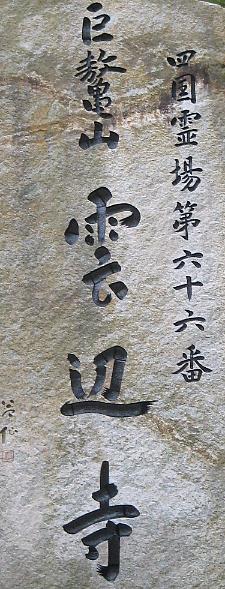 四国霊場第六十六番
巨鼇山
雲辺寺